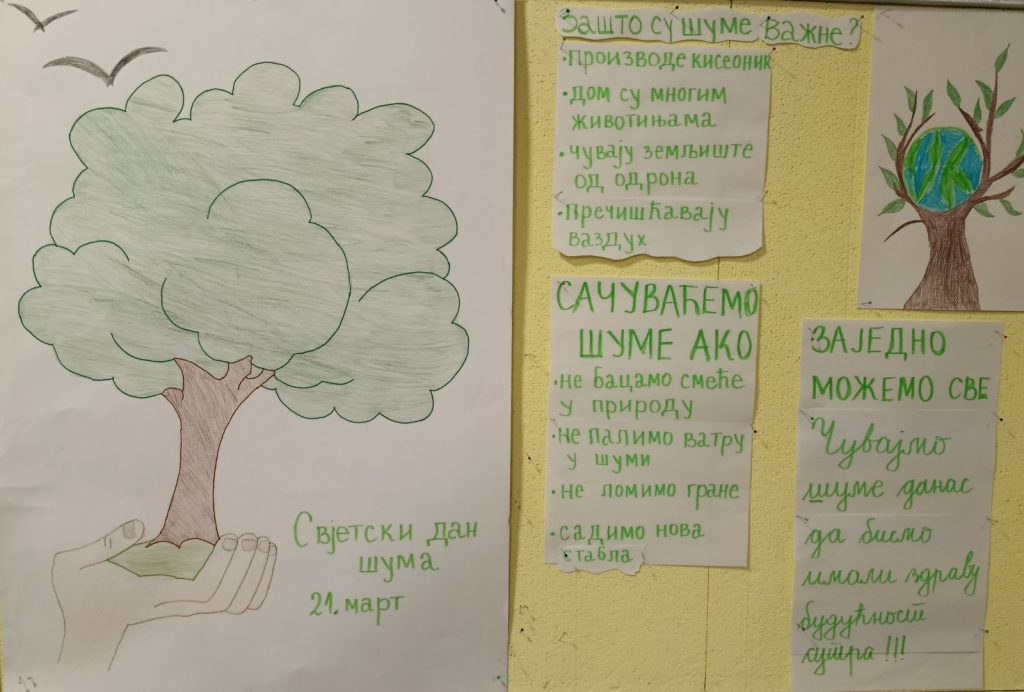 Свјетски дан
шума
21. март
Зашто су шуме важне?
• Производе кисеоник
• дом су многим
животињама
• чувају земљиште
од одрона
• Пречишћавају
ваздух
САЧУВАЋЕМО
ШУМЕ АКО
• не бацамо смеће
у природу
• не палимо ватру
у шуми
• не ломимо гране
• садимо нова
стабла
ЗАЈЕДНО
МОЖЕМО СВЕ
Чувајмо
шуме данас
да бисмо
имали здраву
будућност
сутра!!!